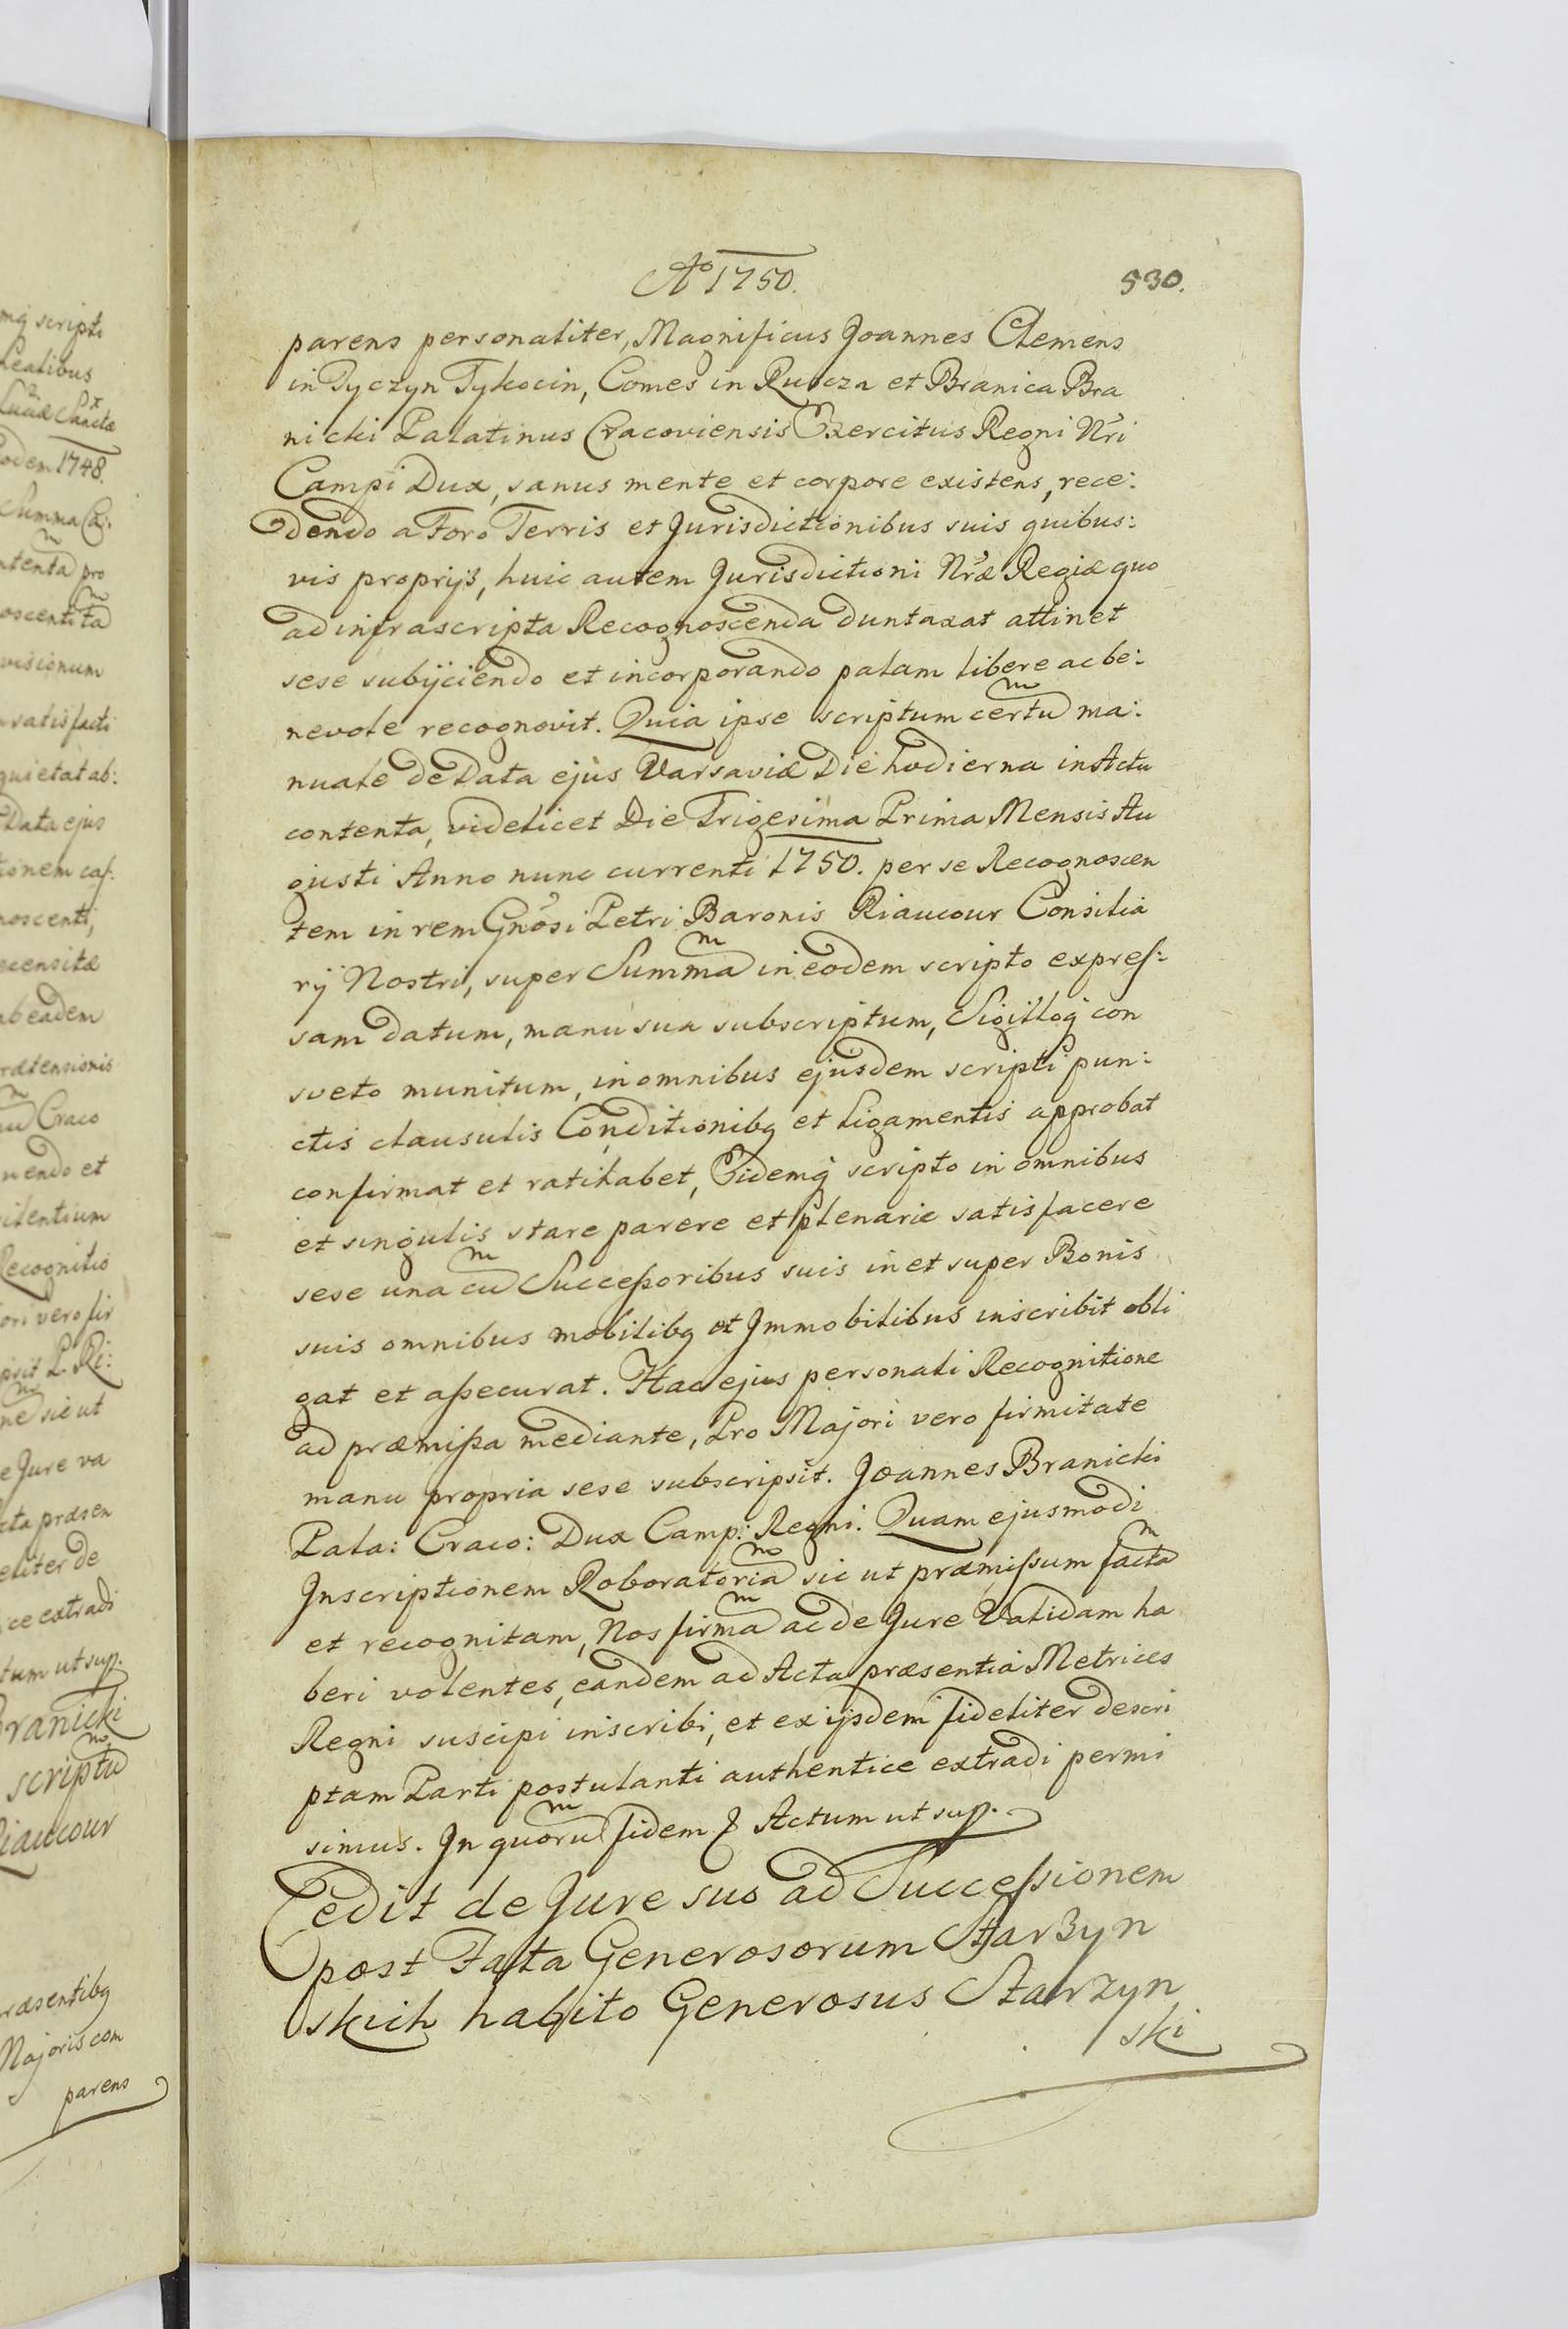 Aº 1750. 530.
parens personaliter, Magnificus Joannes Clemens
in Tyczyn Tykocin, Comes in Ruszcza et Branica Bra
nicki Palatinus Cracoviensis Exercitus Regni Nri
Campi Dux, sanus mente et corpore existens, rece:
dendo a Foro Terris et Jurisdictionibus suis quibus:
vis proprijs, huic autem Jurisdictioni Nræ Regiæ quo
ad infrascripta Recognoscenda duntaxat attinet
sese subijciendo et incorporando palam libere ac be:
nevole recognovit. Quia ipse scriptum certum ma:
nuale de Data ejus Varsaviæ Die hodierna in Actu
contenta, videlicet Die Trigesima Prima Mensis Au
gusti Anno nunc currenti 1750. per se Recognoscen
tem in rem Gnosi Petri Baronis Riaucour Consilia
rij Nostri, super Summam in eodem scripto expres:
sam datum, manu sua subscriptum, Sigilloq con
sveto munitum, in omnibus ejusdem scripti pun:
ctis clausulis Conditionibq et Ligamentis approbat
confirmat et ratihabet, Eidemq scripto in omnibus
et singulis stare parere et plenarie satisfacere
sese una cum Successoribus suis in et super Bonis
suis omnibus mobilibq et Immobilibus inscribit obli
gat et assecurat. Hac ejus personali Recognitione
ad præmissa mediante, Pro Majori vero firmitate
manu propria sese subscripsit. Joannes Branicki
Pala: Craco: Dux Camp: Regni. Quam ejusmodi
Inscriptionem Roboratoriam sic ut præmissum factam
et recognitam, Nos firmam ac de Jure Validam ha
beri volentes, eandem ad Acta præsentia Metrices
Regni suscipi inscribi, et ex ijsdem fideliter descri
ptam Parti postulanti authentice extradi permi
simus. In quorum fidem & Actum ut sup.
Cedit de Jure suo ad Successionem
post Fata Generosorum Starzyn
skich habito Generosus Starzyn
ski
mq scripti
1748.
Summa
pro
visionum
satisfacti
quietat ab:
Data ejus
noscenti,
recensitæ
ab eadem
rætensionis
Craco
nendo et
Recognitio
ori vero fir
sic ut
e Jure va
cta præsen
eliter de
ce extradi
tum ut sup.
Branicki
scriptum
Riaucour
ræsentibq
Majoris com
parens